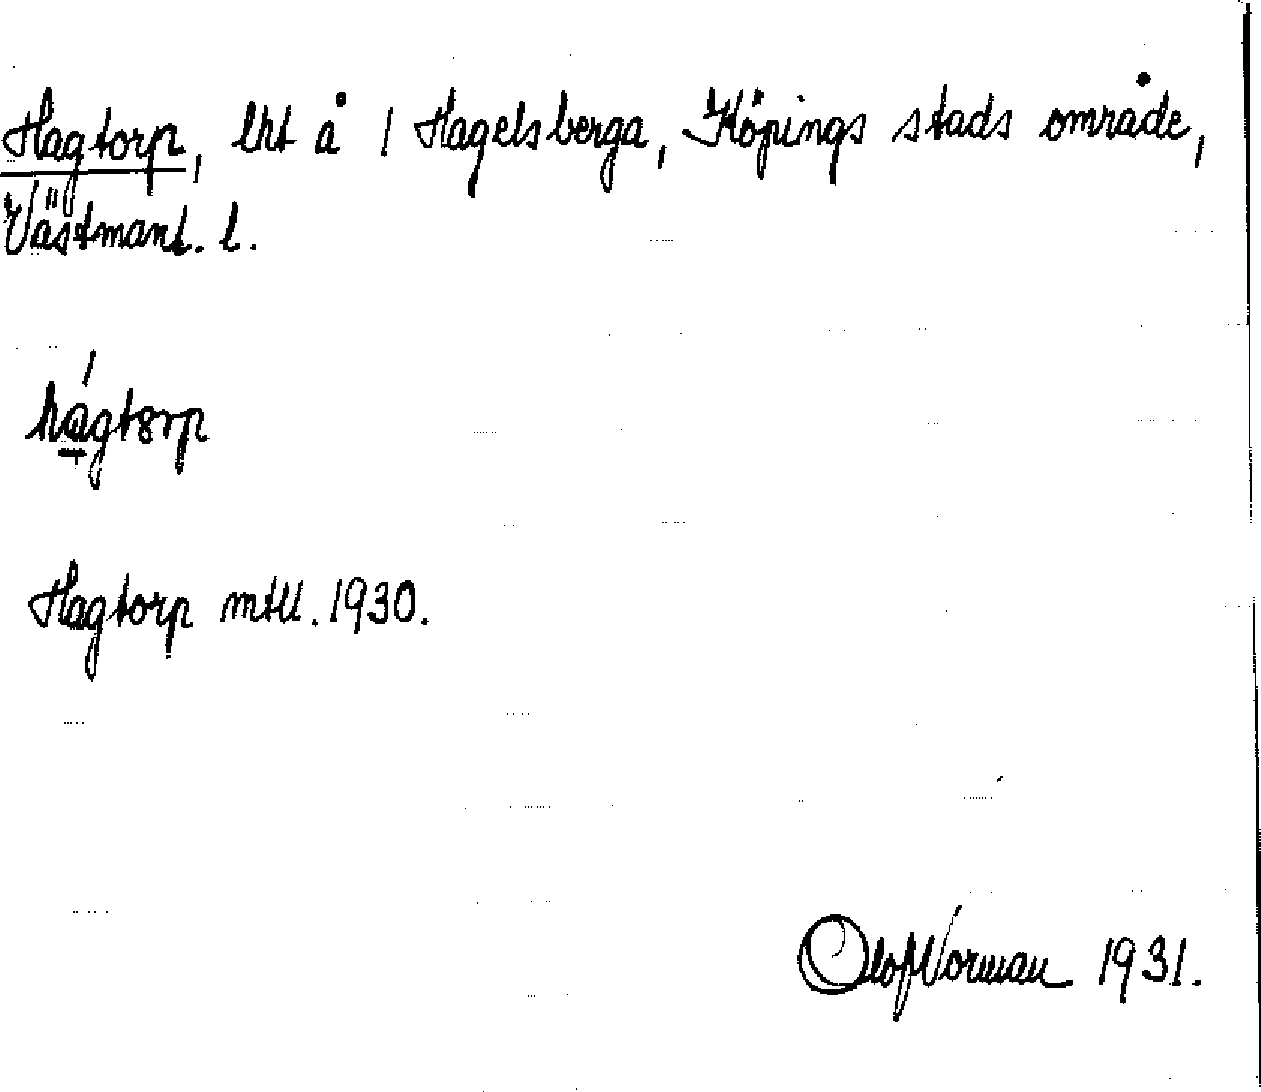 Hagtorp, lht å 1 Hagelsberga, Köpings stads område,
Västmanl. l.
hágtorp
Hagtorp mtll. 1930.
Olof Norman 1931.